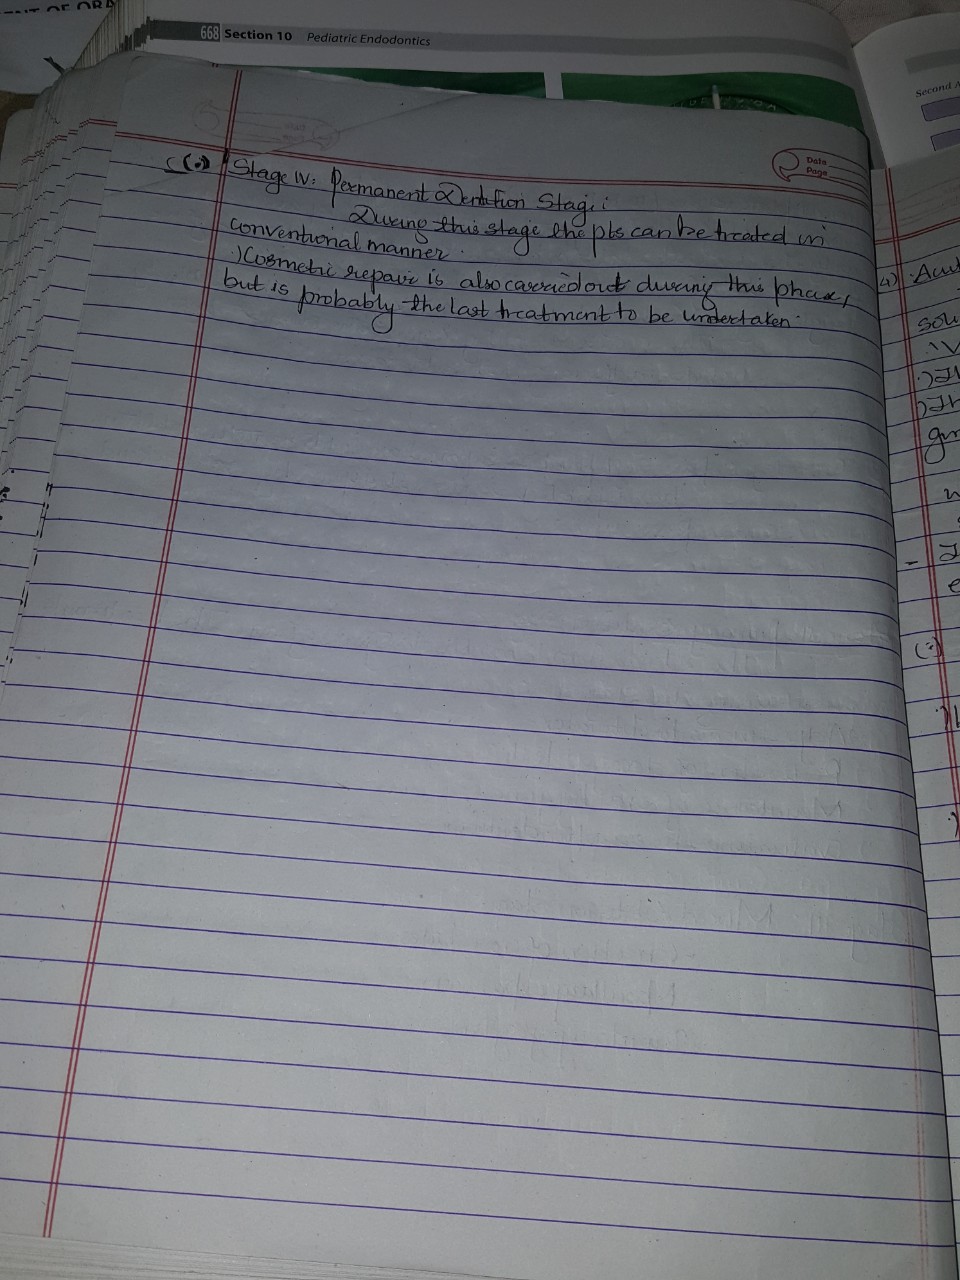 668 Section 10 Pediatric Endodontics
Second
Date
Page
Stage IV: Permanent Dentition Stage:
During this stage the pts can be treated in
conventional manner.
·) Cosmetic repair is also carried out during this phase,
but is probably the last treatment to be undertaken.
4)